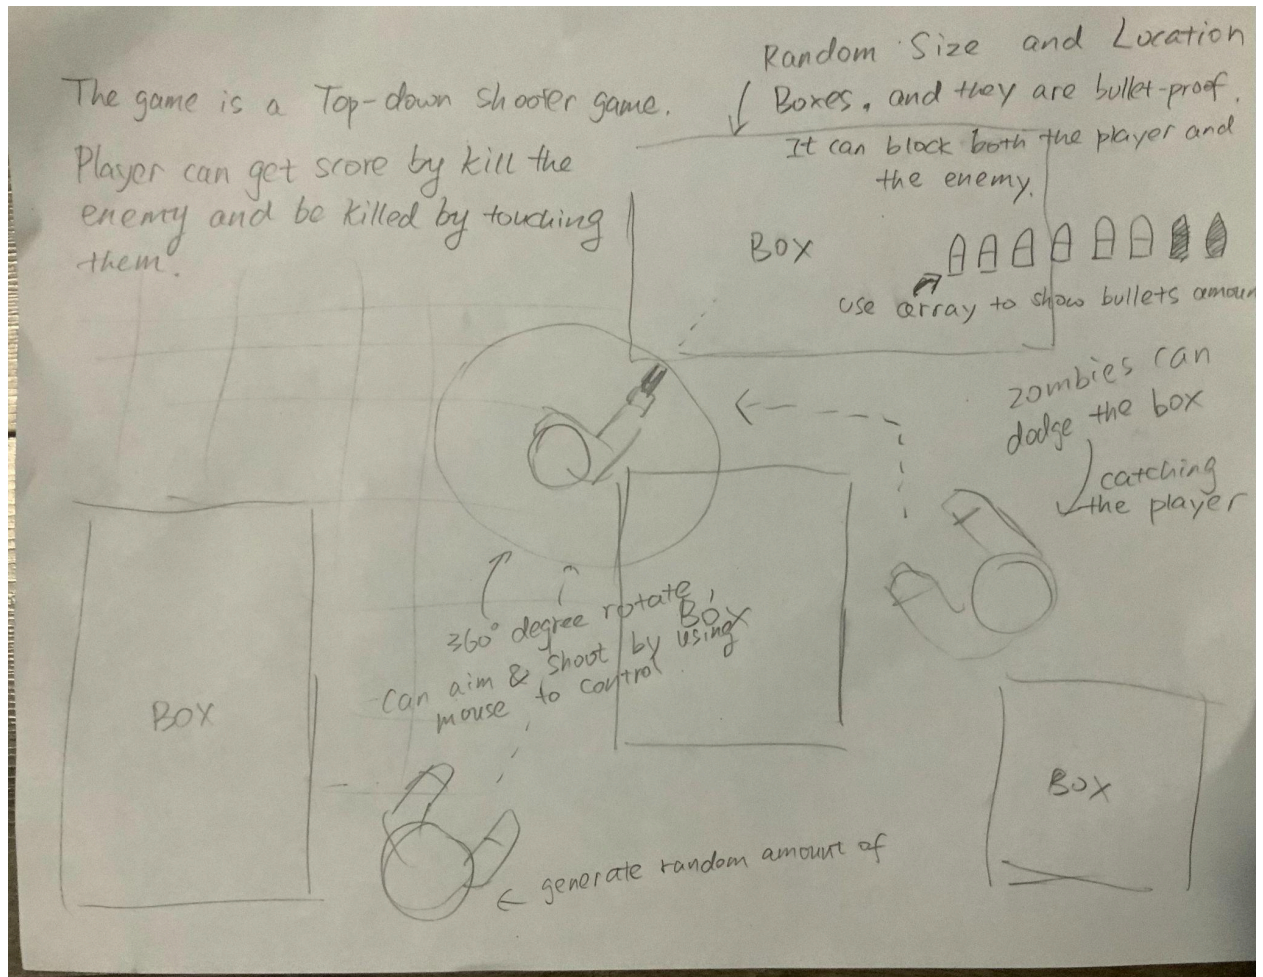 The game is a Top-down shooter game.
Player can get score by kill the
enemy and be killed by touching
them.
Random Size and Location
Boxes, and they are bullet-proof.
It can block both the player and
the enemy.
BOX
use array to show bullets amoun
zombies can
dodge the box
catching
the player
360° degree rotate,
Can aim & shoot by using
mouse to control
BOX
BOX
BOX
generate random amount of